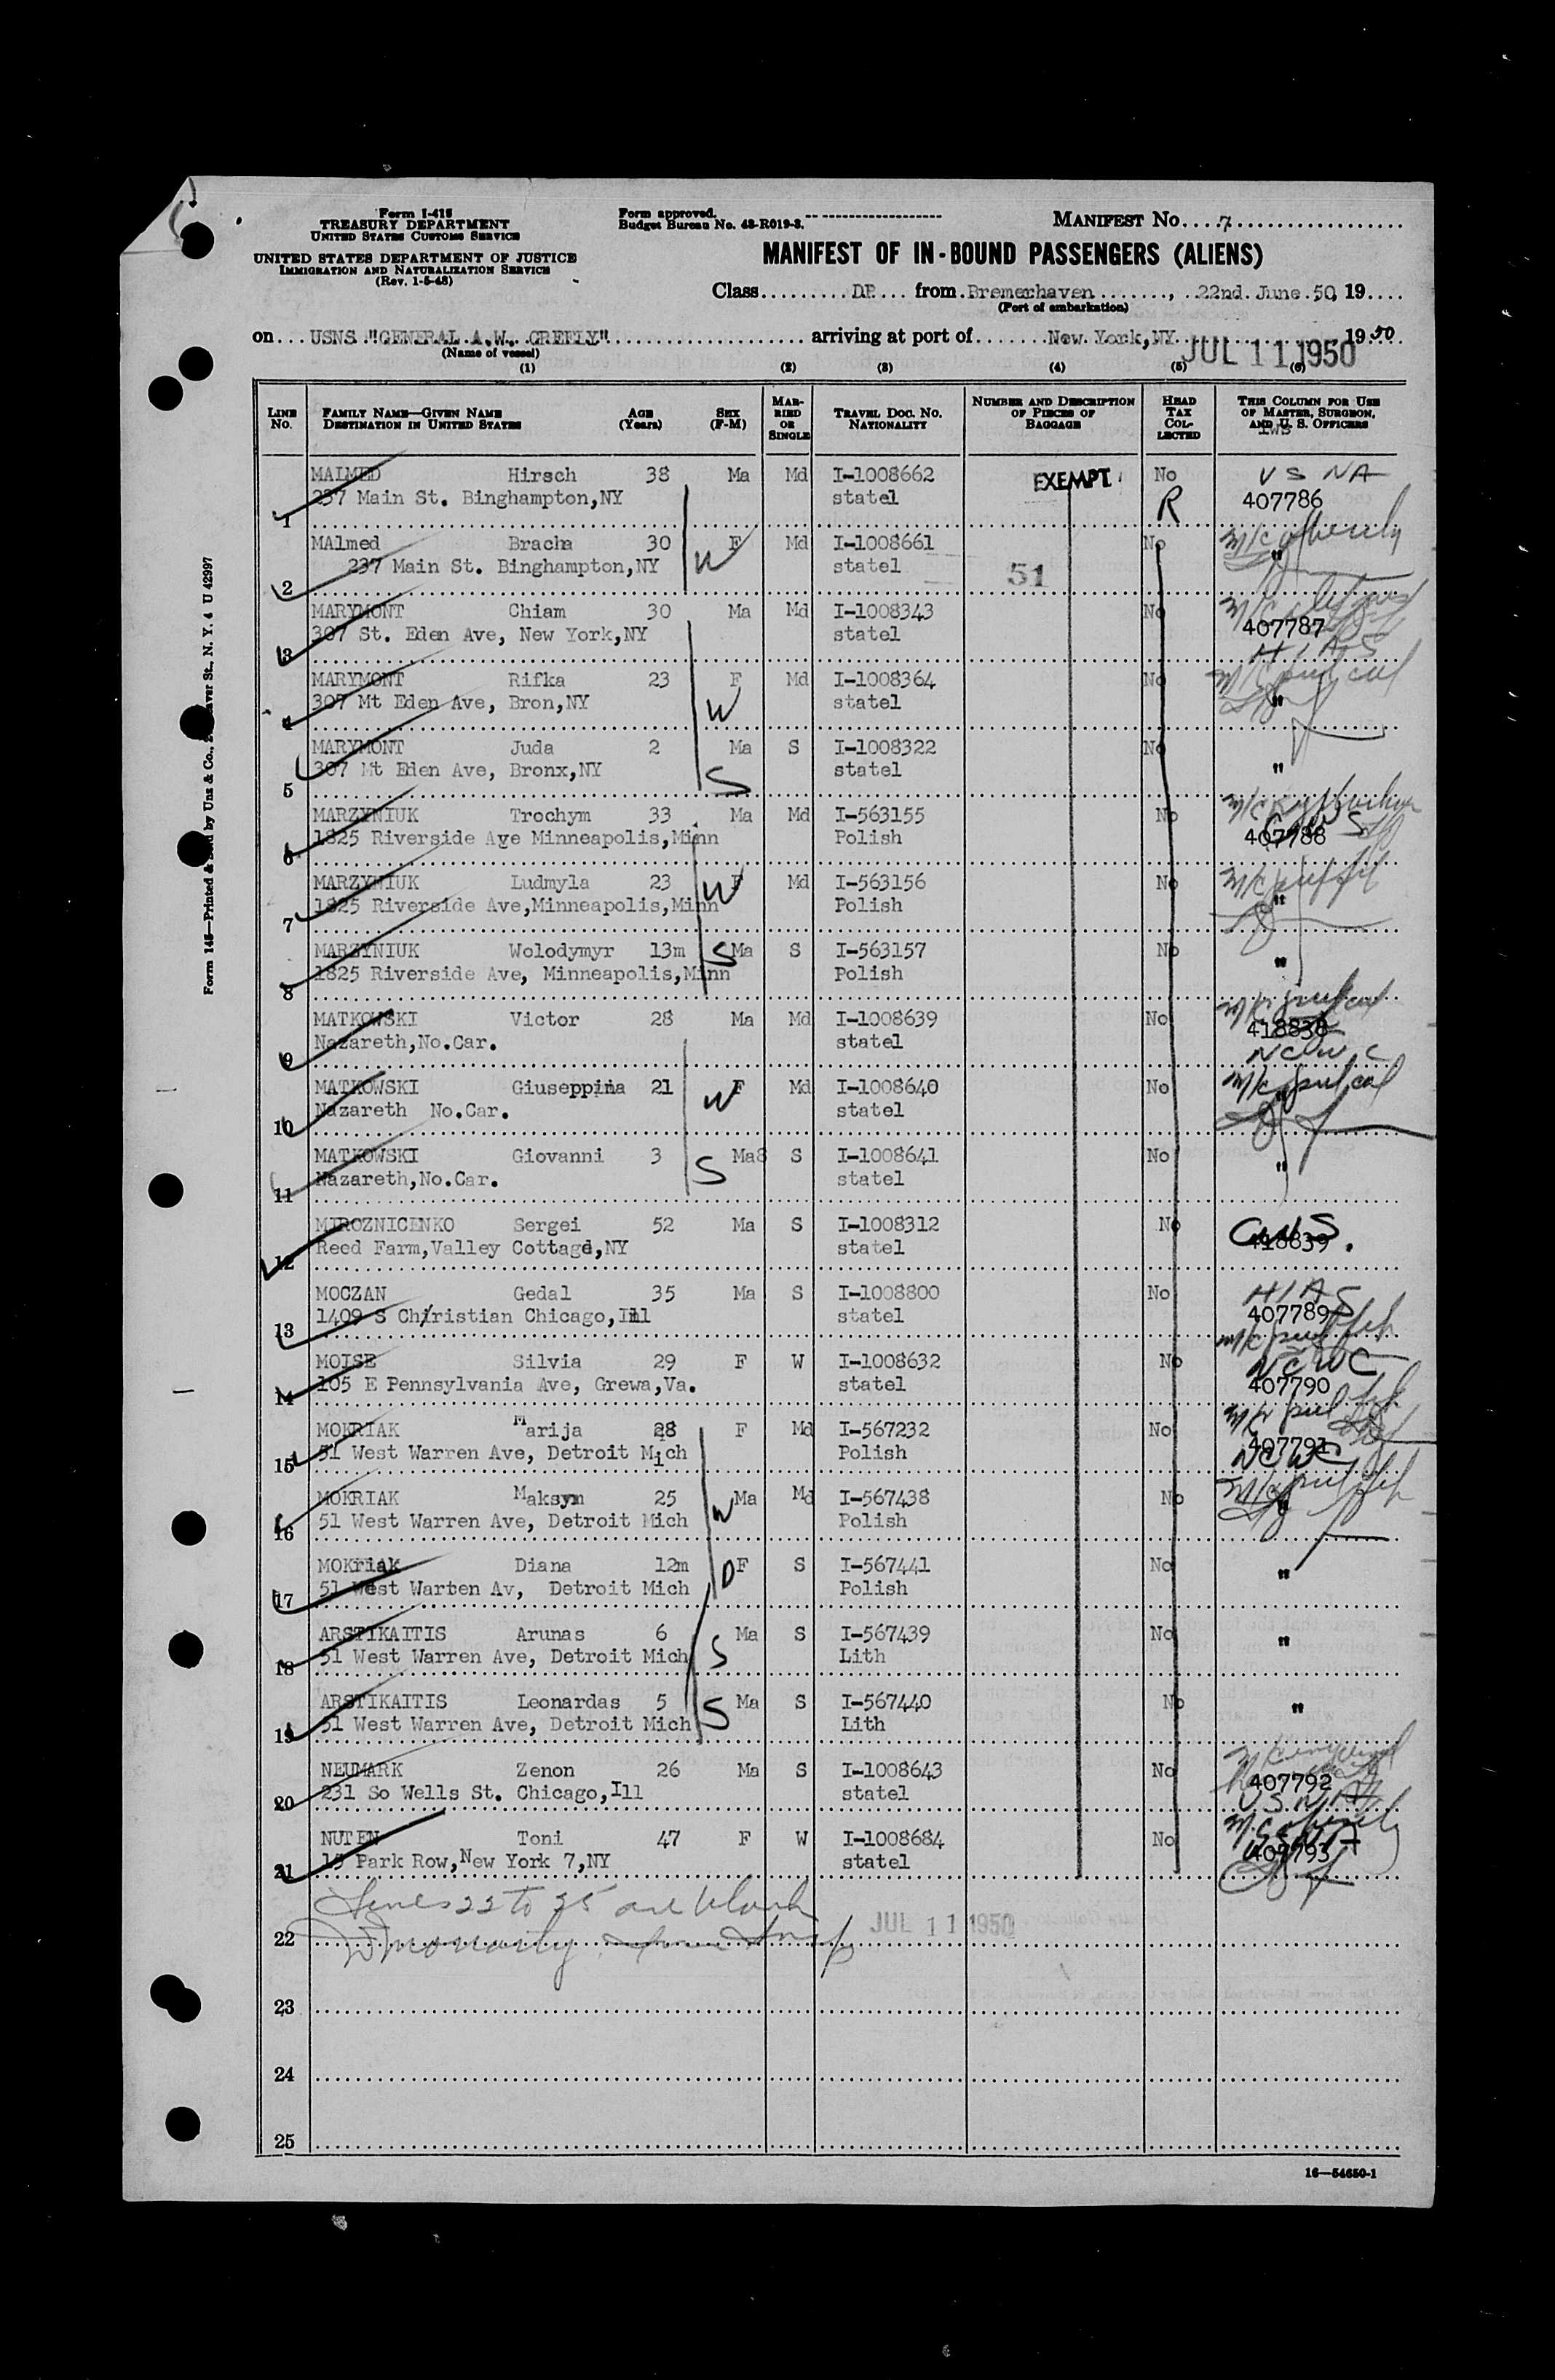 Form I-415
TREASURY DEPARTMENT
UNITED STATES CUSTOMS SERVICE
UNITED STATES DEPARTMENT OF JUSTICE
IMMIGRATION AND NATURALIZATION SERVICE
(Rev. 1-5-48)
Form approved.
Budget Bureau No. 43-R019-3.
MANIFEST No. 7
MANIFEST OF IN-BOUND PASSENGERS (ALIENS)
Class DP from Bremerhaven, 22nd. June 50, 19
(Port of embarkation)
on USNS "GENERAL A.W. GREELY" arriving at port of New York,NY 1950
(Name of vessel)
JUL 11 1950
(1) (2) (3) (4) (5) (6)
LINE No. FAMILY NAME—GIVEN NAME DESTINATION IN UNITED STATES AGE (Years) SEX (F-M) MARRIED OR SINGLE TRAVEL DOC. NO. NATIONALITY NUMBER AND DESCRIPTION OF PIECES OF BAGGAGE HEAD TAX COLLECTED THIS COLUMN FOR USE OF MASTER, SURGEON, AND U. S. OFFICERS
1 MALMED Hirsch 38 Ma Md I-1008662 EXEMPT No U S N A
237 Main St. Binghampton,NY statel R 407786
2 MAlmed Bracha 30 F Md I-1008661 No "
237 Main St. Binghampton,NY W statel 51
3 MARYMONT Chiam 30 Ma Md I-1008343 No 407787
307 St. Eden Ave, New York,NY statel H I A S
4 MARYMONT Rifka 23 F Md I-1008364 No "
307 Mt Eden Ave, Bron,NY W statel
5 MARYMONT Juda 2 Ma S I-1008322 No "
307 Mt Eden Ave, Bronx,NY S statel
6 MARZYNIUK Trochym 33 Ma Md I-563155 No 407788
1825 Riverside Age Minneapolis,Minn Polish
7 MARZYNIUK Ludmyla 23 W F Md I-563156 No "
1825 Riverside Ave,Minneapolis,Minn Polish
8 MARZYNIUK Wolodymyr 13m S Ma S I-563157 No "
1825 Riverside Ave, Minneapolis,Minn Polish
9 MATKOWSKI Victor 28 Ma Md I-1008639 No 418838
Nazareth,No.Car. statel N C W C
10 MATKOWSKI Giuseppina 21 W F Md I-1008640 No "
Nazareth No.Car. statel
11 MATKOWSKI Giovanni 3 S Ma S I-1008641 No "
Nazareth,No.Car. statel
12 MIROZNICENKO Sergei 52 Ma S I-1008312 No 418839
Reed Farm,Valley Cottage,NY statel
13 MOCZAN Gedal 35 Ma S I-1008800 No H I A S
1409 S Christian Chicago,Ill statel 407789
14 MOISE Silvia 29 F W I-1008632 No N C W C
105 E Pennsylvania Ave, Grewa,Va. statel 407790
15 MOKRIAK Marija 28 F Md I-567232 No 407791
51 West Warren Ave, Detroit Mich Polish NCWC
16 MOKRIAK Maksym 25 W Ma Md I-567438 No "
51 West Warren Ave, Detroit Mich Polish
17 MOKriak Diana 12m D F S I-567441 No "
51 West Warren Av, Detroit Mich Polish
18 ARSTIKAITIS Arunas 6 S Ma S I-567439 No "
51 West Warren Ave, Detroit Mich Lith
19 ARSTIKAITIS Leonardas 5 S Ma S I-567440 No "
51 West Warren Ave, Detroit Mich Lith
20 NEUMARK Zenon 26 Ma S I-1008643 No 407792
231 So Wells St. Chicago,Ill statel U S N A
21 NUTEN Toni 47 F W I-1008684 No 407793
15 Park Row,New York 7,NY statel
Lines 22 to 25 are blank
22 JUL 11 1950
23
24
25
16—54650-1